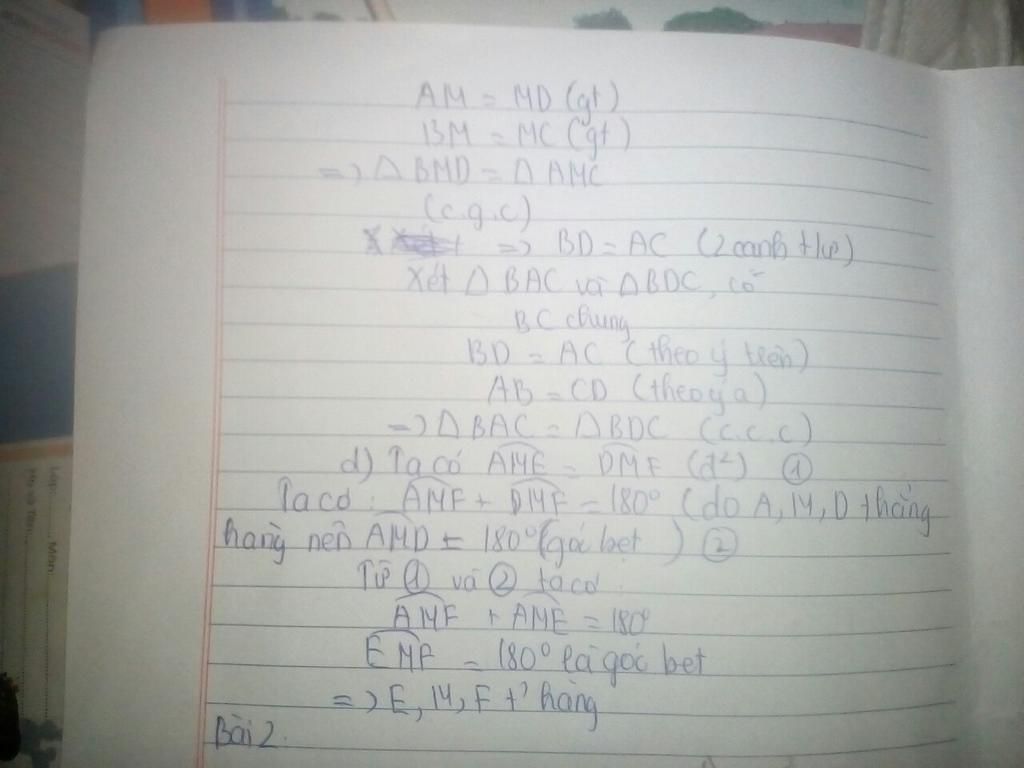 AM = MD (gt)
BM = MC (gt)
=> △ BMD = △ AMC
(c.g.c)
=> BD = AC (2 cạnh t/ư)
Xét △ BAC và △BDC, có
BC chung
BD = AC (theo ý trên)
AB = CD (theo ý a)
=> △ BAC = △BDC (c.c.c)
d) Ta có AME = DMF (đ²) ①
Ta có : AMF + DMF = 180° (do A, M, D thẳng
hàng nên AMD = 180° (góc bẹt ) ②
Từ ① và ② ta có :
AMF + AME = 180°
EMF = 180° là góc bẹt
=> E, M, F t² hàng
Bài 2.